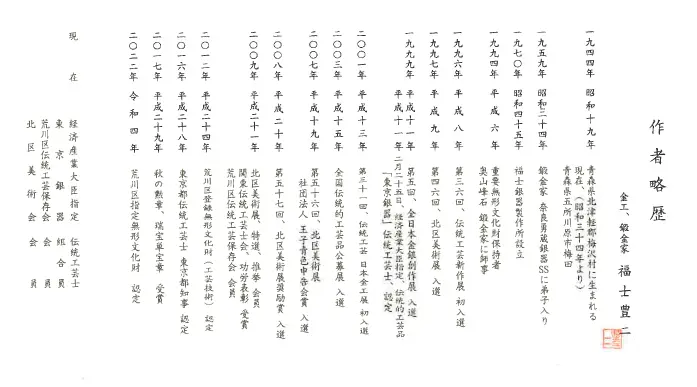 作者略歴
金工、鍛金家 福士豊二
一九四四年 昭和十九年 青森県北津軽郡梅沢村に生まれる
現在、(昭和三十四年より)
青森県五所川原市梅田
一九五九年 昭和三十四年 鍛金家 奈良勇蔵銀器SSに弟子入り
一九七〇年 昭和四十五年 福士銀器製作所設立
一九九四年 平成六年 重要無形文化財保持者
奥山峰石 鍛金家に師事
一九九六年 平成八年 第三六回、伝統工芸新作展 初入選
一九九七年 平成九年 第四六回、北区美術展 入選
一九九九年 平成十一年 第五回、全日本金銀創作展 入選
一九九九年 平成十一年二月二十五日、経済産業大臣指定、伝統的工芸品
「東京銀器」伝統工芸士、認定
二〇〇一年 平成十三年 第三十一回、伝統工芸 日本金工展 初入選
二〇〇三年 平成十五年 全国伝統的工芸品公募展 入選
二〇〇七年 平成十九年 第五十六回、北区美術展
社団法人 王子青色申告会賞 入選
二〇〇八年 平成二十年 第五十七回、北区美術展奨励賞 入選
二〇〇九年 平成二十一年 北区美術展、特選、推挙 会員
関東伝統工芸士会、功労表彰 受賞
荒川区伝統工芸保存会 会員
二〇一二年 平成二十四年 荒川区登録無形文化財(工芸技術) 認定
二〇一六年 平成二十八年 東京都伝統工芸士 東京都知事 認定
二〇一七年 平成二十九年 秋の勲章、瑞宝単宝章 受賞
二〇二二年 令和四年 荒川区指定無形文化財 認定
現在 経済産業大臣指定 伝統工芸士
東京銀器 組合員
荒川区伝統工芸保存会 会員
北区美術会 会員